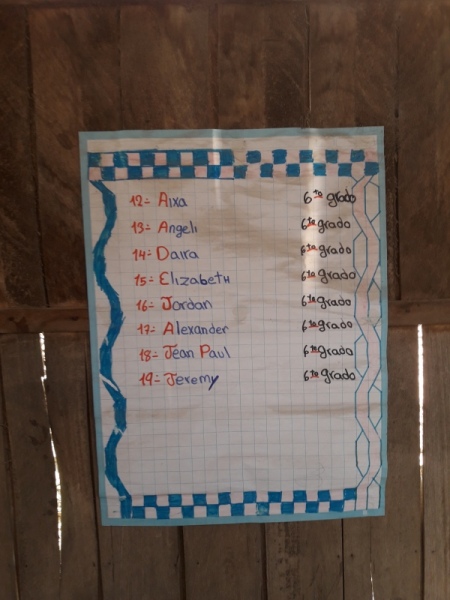 12= Aixa 6to grado
13= Angeli 6to grado
14= Daira 6to grado
15= Elizabeth 6to grado
16= Jordan 6to grado
17= Alexander 6to grado
18= Jean Paul 6to grado
19= Jeremy 6to grado